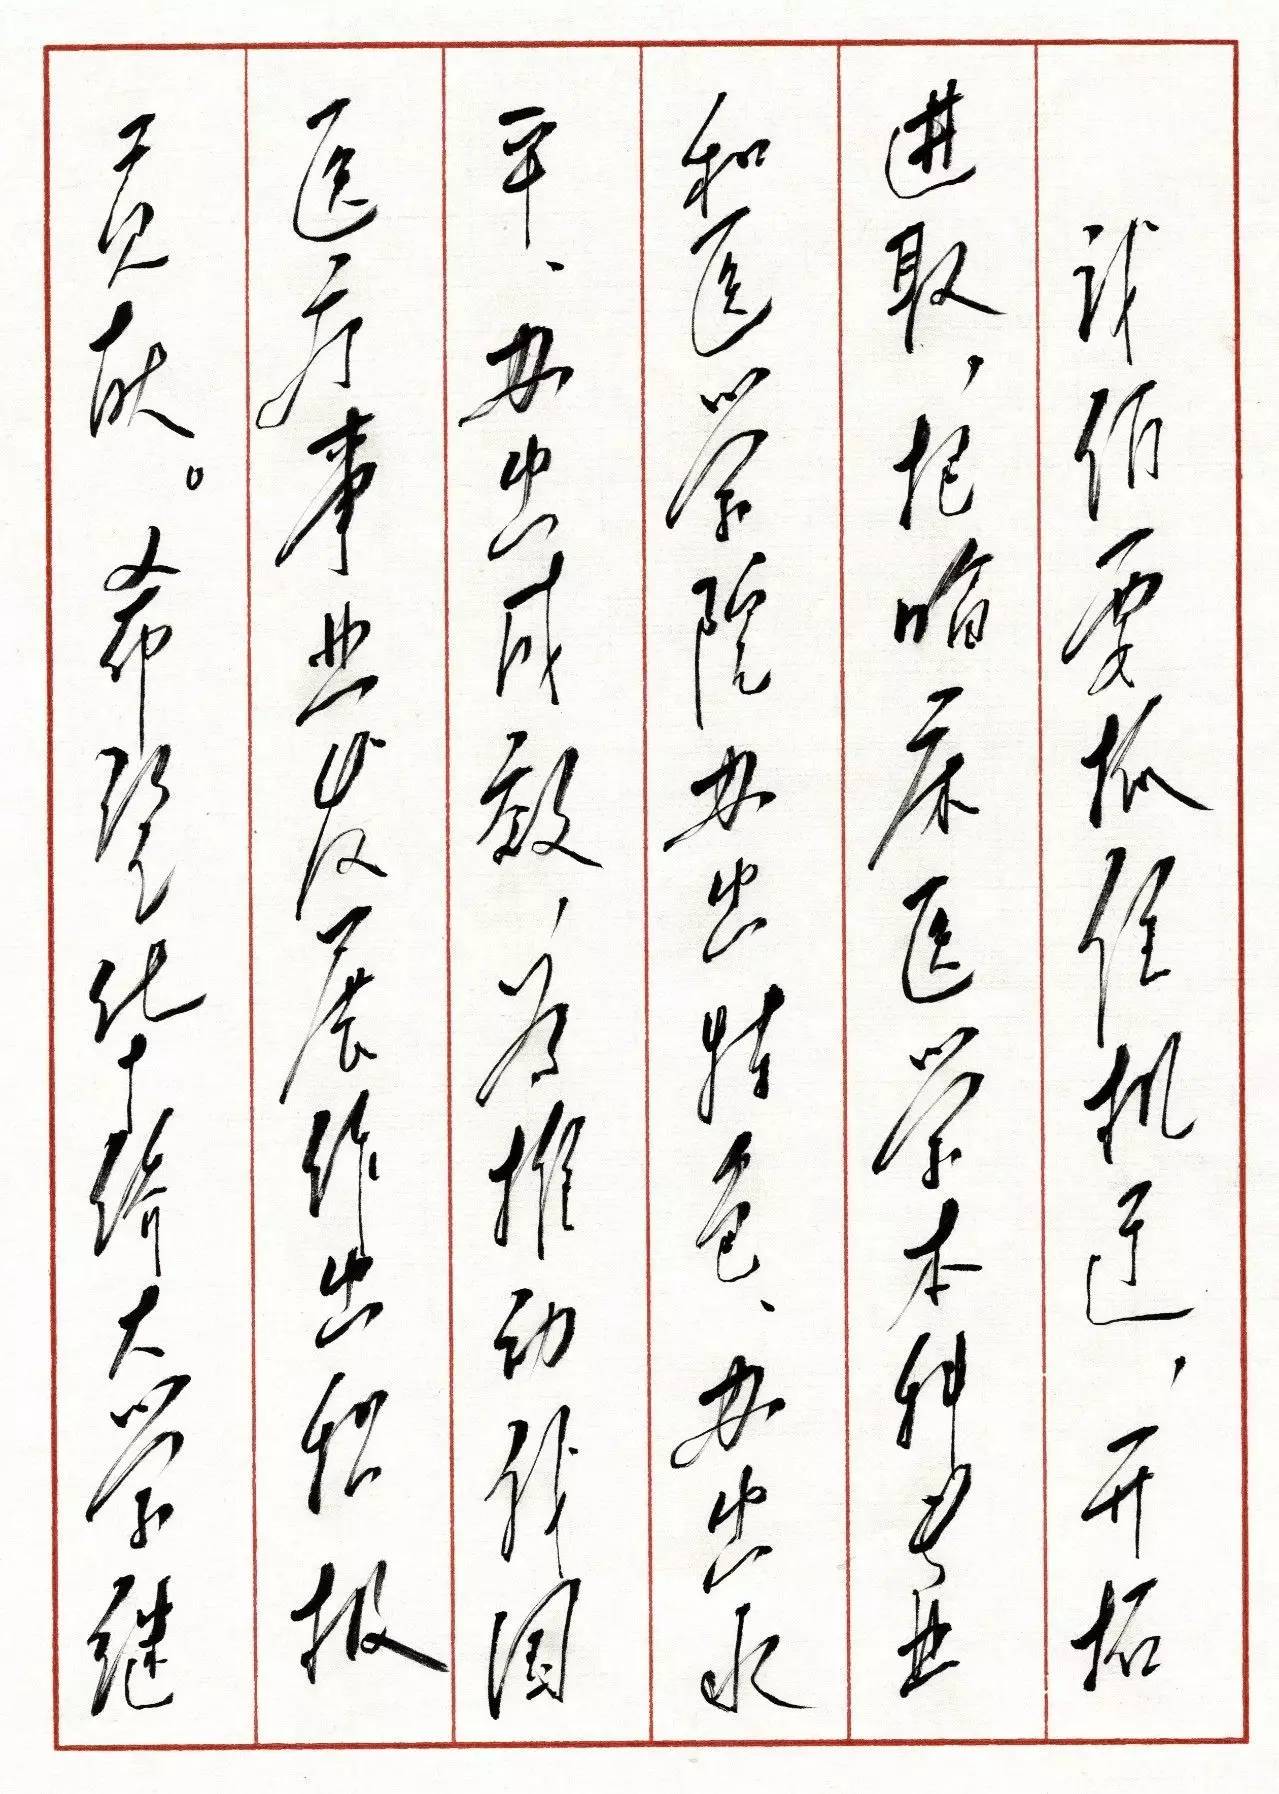 我们要抓住机遇，开拓
进取，把临床医学本科专业
和医学院办出特色、办出水
平、办出成效，为推动我国
医疗事业发展作出积极
贡献。又希望化十绮大学继